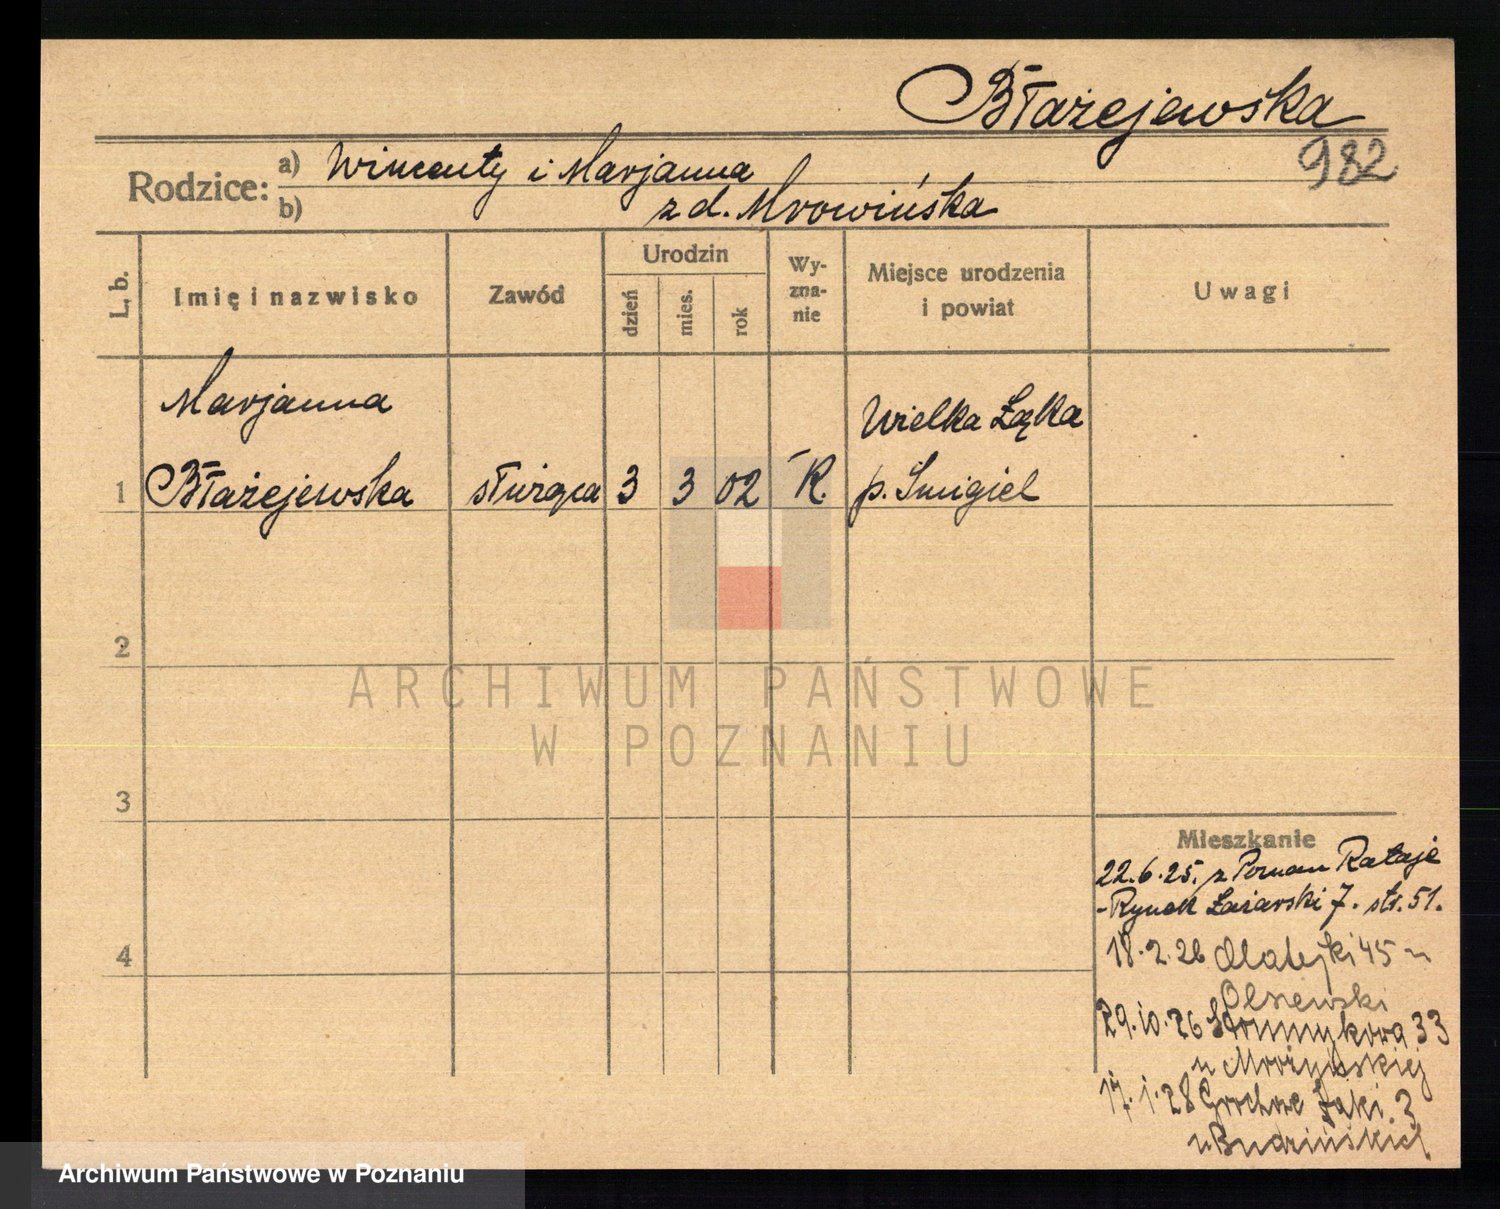 Błażejewska
982
Rodzice: a) Wincenty i Marjanna
b) z d. Mrowińska
L. b. Imię i nazwisko Zawód Urodzin dzień mies. rok Wy-zna-nie Miejsce urodzenia i powiat Uwagi
Marjanna Wielka Łąka
1 Błażejewska służąca 3 3 02 R. p. Śmigiel
2
ARCHIWUM PAŃSTWOWE
W POZNANIU
3
Mieszkanie
22.6.25. z Poznan Rataje
- Rynek Łazarski 7. str. 51.
4
18.2.26 Matejki 45 u
Olszewski
29.10.26 Strumykowa 33
u Mrożyńskiej
17.1.28 Grochowe Łąki 3
u Budzińskich
Archiwum Państwowe w Poznaniu